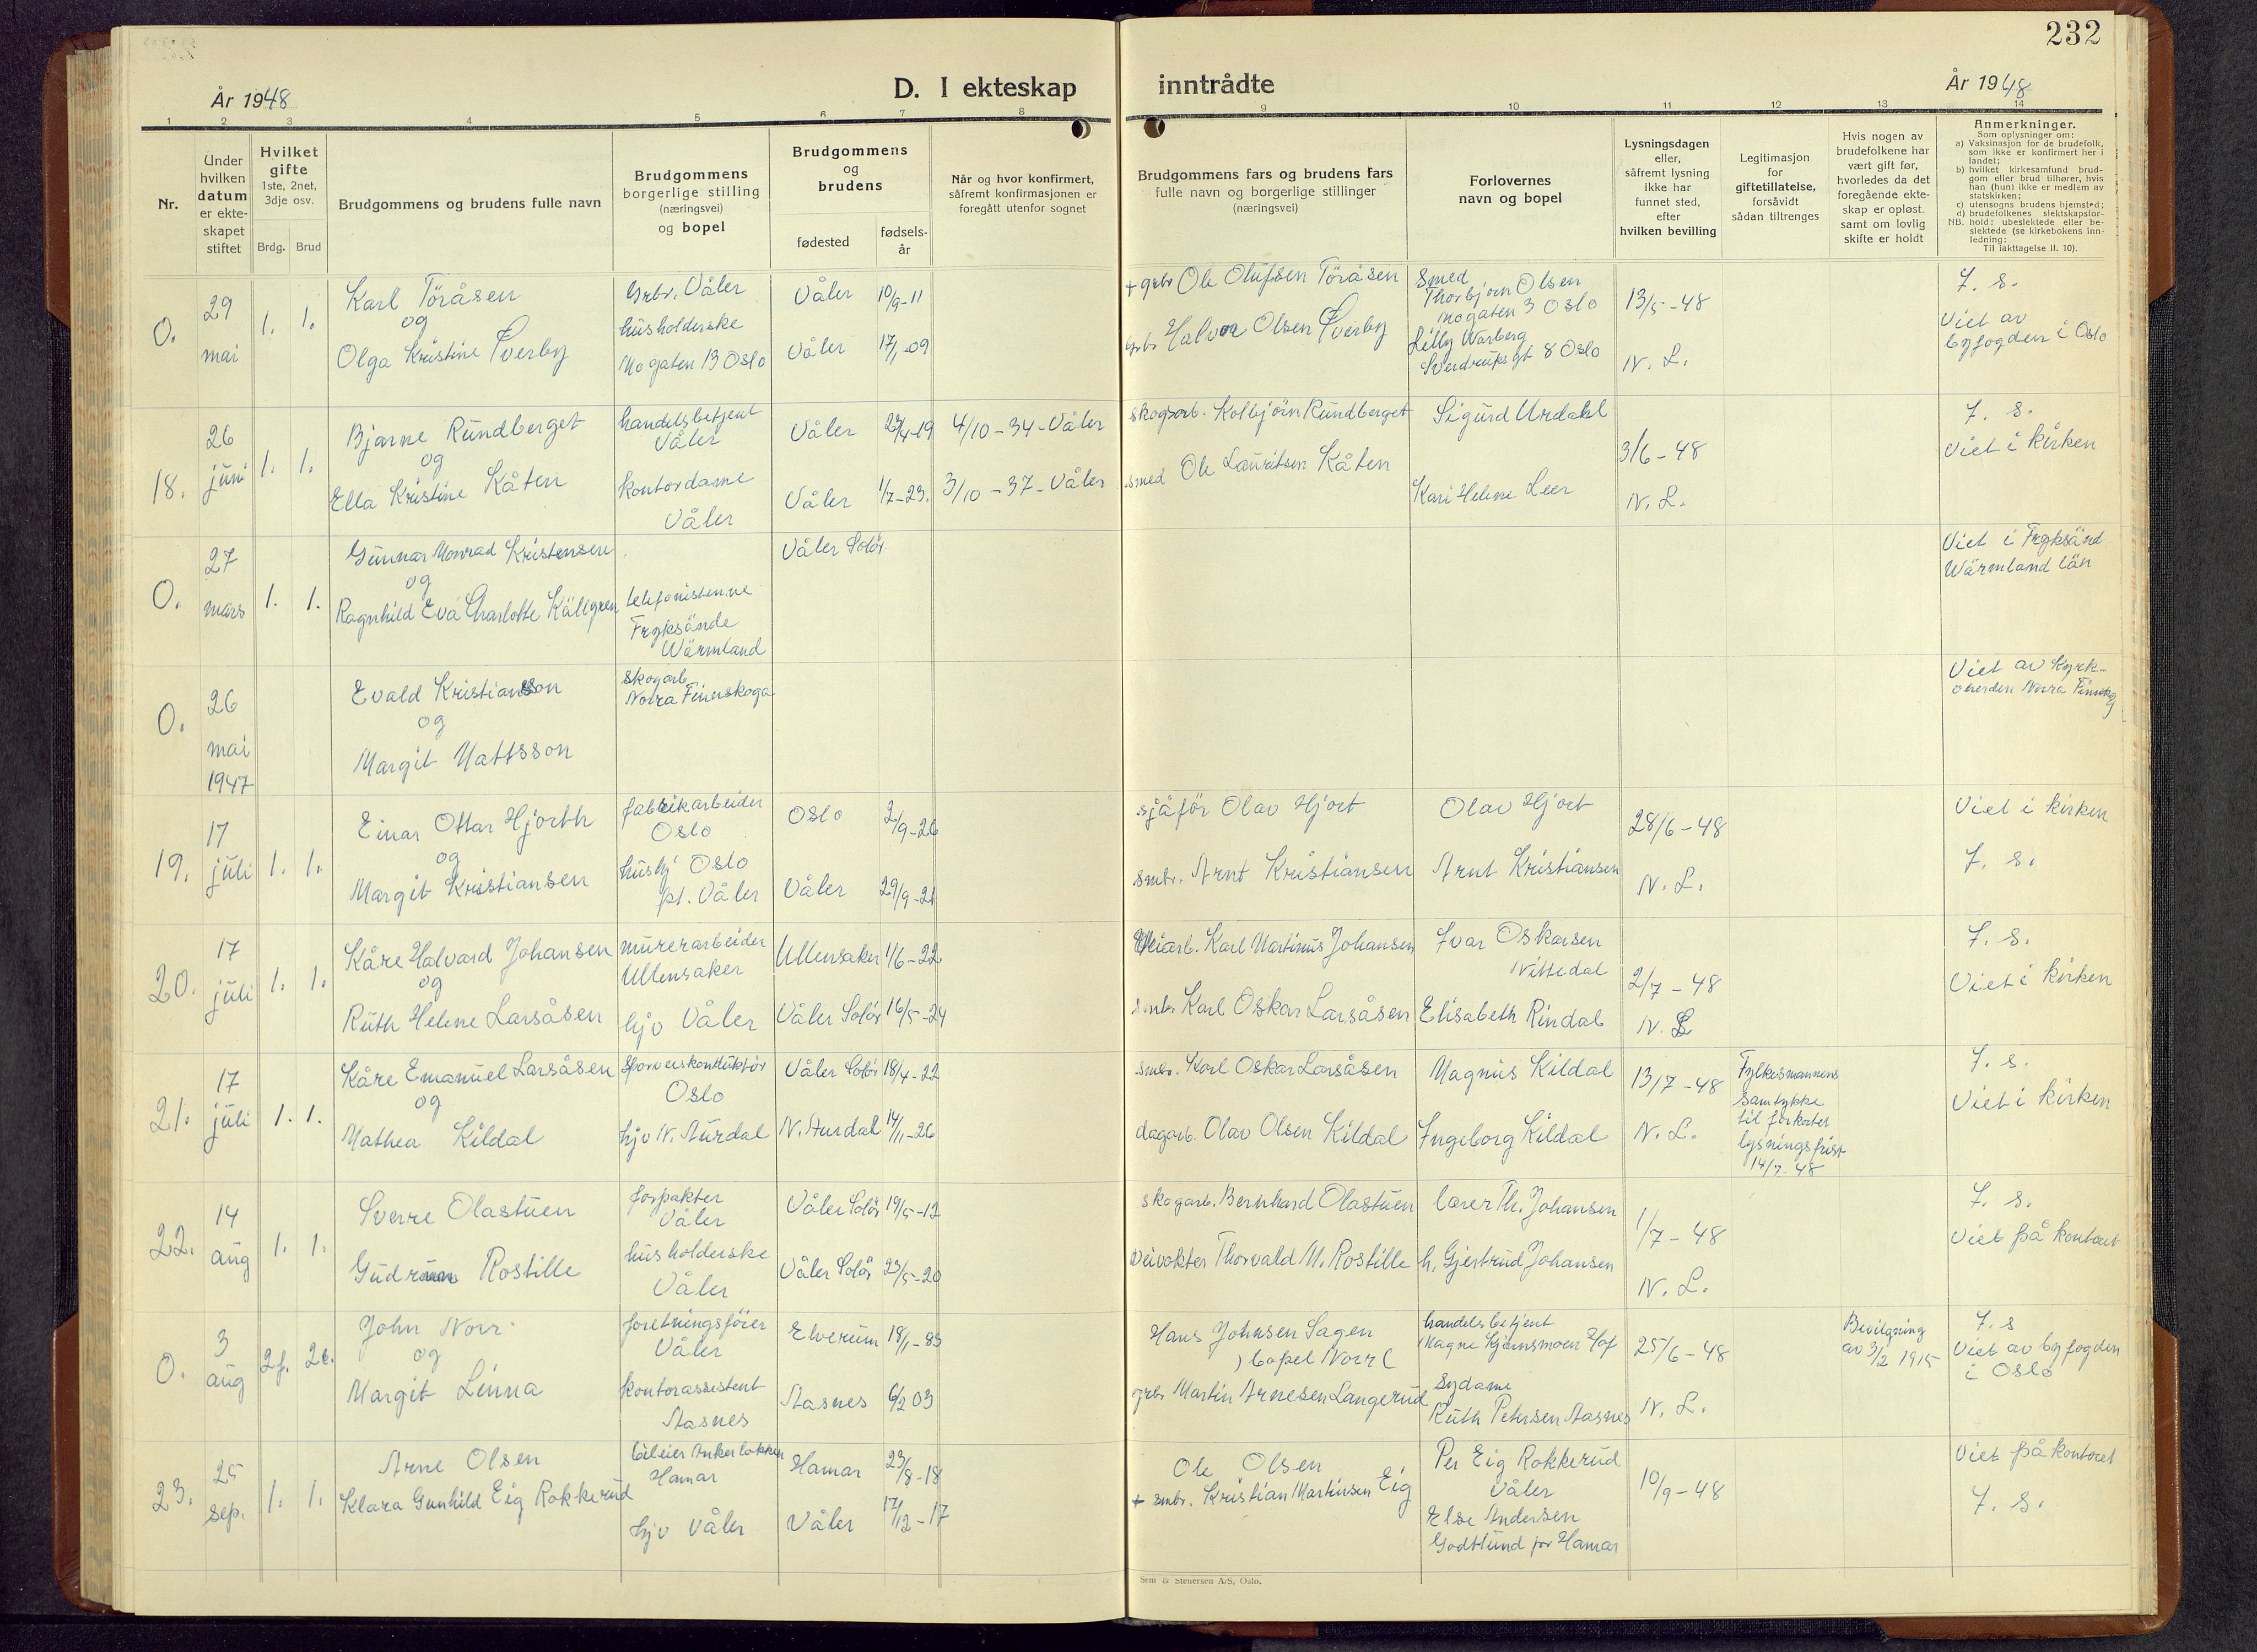 232
År 1948
D. I ekteskap
inntrådte
År 1948
1 2 3 4 5 6 7 8 9 10 11 12 13 14
Nr.
Under
hvilken
datum
er ekte-
skapet
stiftet
Hvilket
gifte
1ste, 2net,
3dje osv.
Brdg. Brud
Brudgommens og brudens fulle navn
Brudgommens
borgerlige stilling
(næringsvei)
og bopel
Brudgommens
og
brudens
fødested
fødsels-
år
Når og hvor konfirmert,
såfremt konfirmasjonen er
foregått utenfor sognet
Brudgommens fars og brudens fars
fulle navn og borgerlige stillinger
(næringsvei)
Forlovernes
navn og bopel
Lysningsdagen
eller,
såfremt lysning
ikke har
funnet sted,
efter
hvilken bevilling
Legitimasjon
for
giftetillatelse,
forsåvidt
sådan tiltrenges
Hvis nogen av
brudefolkene har
vært gift før,
hvorledes da det
foregående ekte-
skap er opløst.
samt om lovlig
skifte er holdt
Anmerkninger.
Som oplysninger om:
a) Vaksinasjon for de brudefolk,
som ikke er konfirmert her i
landet;
b) hvilket kirkesamfund brud-
gom eller brud tilhører, hvis
han (hun) ikke er medlem av
statskirken;
c) utensogns brudens hjemsted;
d) brudefolkenes slektskapsfor-
NB. hold: ubeslektede eller be-
slektede (se kirkebokens inn-
ledning:
Til iakttagelse II. 10).
0.
29
mai
1. 1.
Karl Töråsen
og
Olga Kristine Tverby
Grbr. Våler
husholderske
Mogaten 13 Oslo
Våler 10/9-11
Våler 17/1-09
+ grbr Ole Olufsen Töråsen
grbr Halvor Olsen Tverby
Smed
Thorbjørn Olsen
Mogaten 3 Oslo
Lilly Warberg
Sverdrups gt 8 Oslo
13/5-48
N. L.
f. s.
Viet av
byfogden i Oslo
18.
26
juni
1. 1.
Bjarne Rundberget
og
Ella Kristine Kåten
handelsbetjent
Våler
kontordame
Våler
Våler
Våler 1/7-23.
4/10-34-Våler
3/10-37-Våler
skogsarb. Kolbjörn Rundberget
smed Ole Lauritsen Kåten
Sigurd Urdahl
Kari Helene Leer
3/6-48
N. L.
f. s.
Viet i kirken
0.
27
mars
1. 1.
Gunnar Monrad Kristensen
og
Ragnhild Eva Charlotte Källgren
telefonistinne
Fryksände
Wärmland
Våler Solör
Viet i Fryksänd
Wärmland län
0.
26
mai
1947
Evald Kristiansson
og
Margit Mattsson
skogarb.
Norra Finnskoga
Viet av Kyrk-
oherden Norra Finnskog
19.
17
juli
1. 1.
Einar Ottar Hjorth
og
Margit Kristiansen
fabrikarbeider
Oslo
hushj Oslo
pt. Våler
Oslo 2/9-26
Våler 29/9-21
sjåför Olav Hjort
smbr. Arnt Kristiansen
Olav Hjort
Arnt Kristiansen
28/6-48
N. L.
Viet i kirken
f. s.
20.
17
juli
1. 1.
Kåre Halvard Johansen
og
Ruth Helene Larsåsen
murerarbeider
Ullensaker
hjv Våler
Ullensaker 1/6-22
Våler Solör 16/5-24
Veiarb. Karl Martinus Johansen
smbr Karl Oskar Larsåsen
Ivar Oskarsen
Nittedal
Elisabeth Rindal
2/7-48
N. L
f. s.
Viet i kirken
21.
17
juli
1. 1.
Kåre Emanuel Larsåsen
og
Mathea Kildal
Sporveiskonduktör
Oslo
hjv N. Aurdal
Våler Solör 18/4-22
N. Aurdal 14/1-26
smbr. Karl Oskar Larsåsen
dagarb. Olav Olsen Kildal
Magnus Kildal
Ingeborg Kildal
13/7-48
N. L.
Fylkesmannens
samtykke
til forkortet
lysningsfrist
14/7-48
f. s.
Viet i kirken
22.
14
aug
1. 1.
Sverre Olastuen
Gudrun Rostille
forpakter
Våler
husholderske
Våler
Våler Solör 19/5-12
Våler Solör 23/5-20
skogarb. Bernhard Olastuen
Veivokter Thorvald M. Rostille
lærer Th. Johansen
h. Gjertrud Johansen
1/7-48
N. L.
f. s.
Viet på kontoret
0.
3
aug
2f. 2e.
John Norr
og
Margit Linna
foretningsförer
Våler
kontorassistent
Aasnes
Elverum 18/1-83
Aasnes 6/2 03
Hans Johnsen Sagen
) bopel Norr (
grbr Martin Arnesen Langerud
handelsbetjent
Magne Kjernsmoen Hof
Sydame
Ruth Petersen Aasnes
25/6-48
N. L.
Bevilgning
av 3/2 1915
f. s
Viet av byfogden
i Oslo
23.
25
sep.
1. 1.
Arne Olsen
Klara Gunhild Eig Rokkerud
bileier Ankerløkken
Hamar
hjv Våler
Hamar 23/8-18
Våler 17/12-17
Ole Olsen
+ smbr. Kristian Martinsen Eig
Per Eig Rokkerud
Våler
Else Andersen
Godtlund pr Hamar
10/9-48
Viet på kontoret
f. s.
Sem & Stenersen A/S, Oslo.